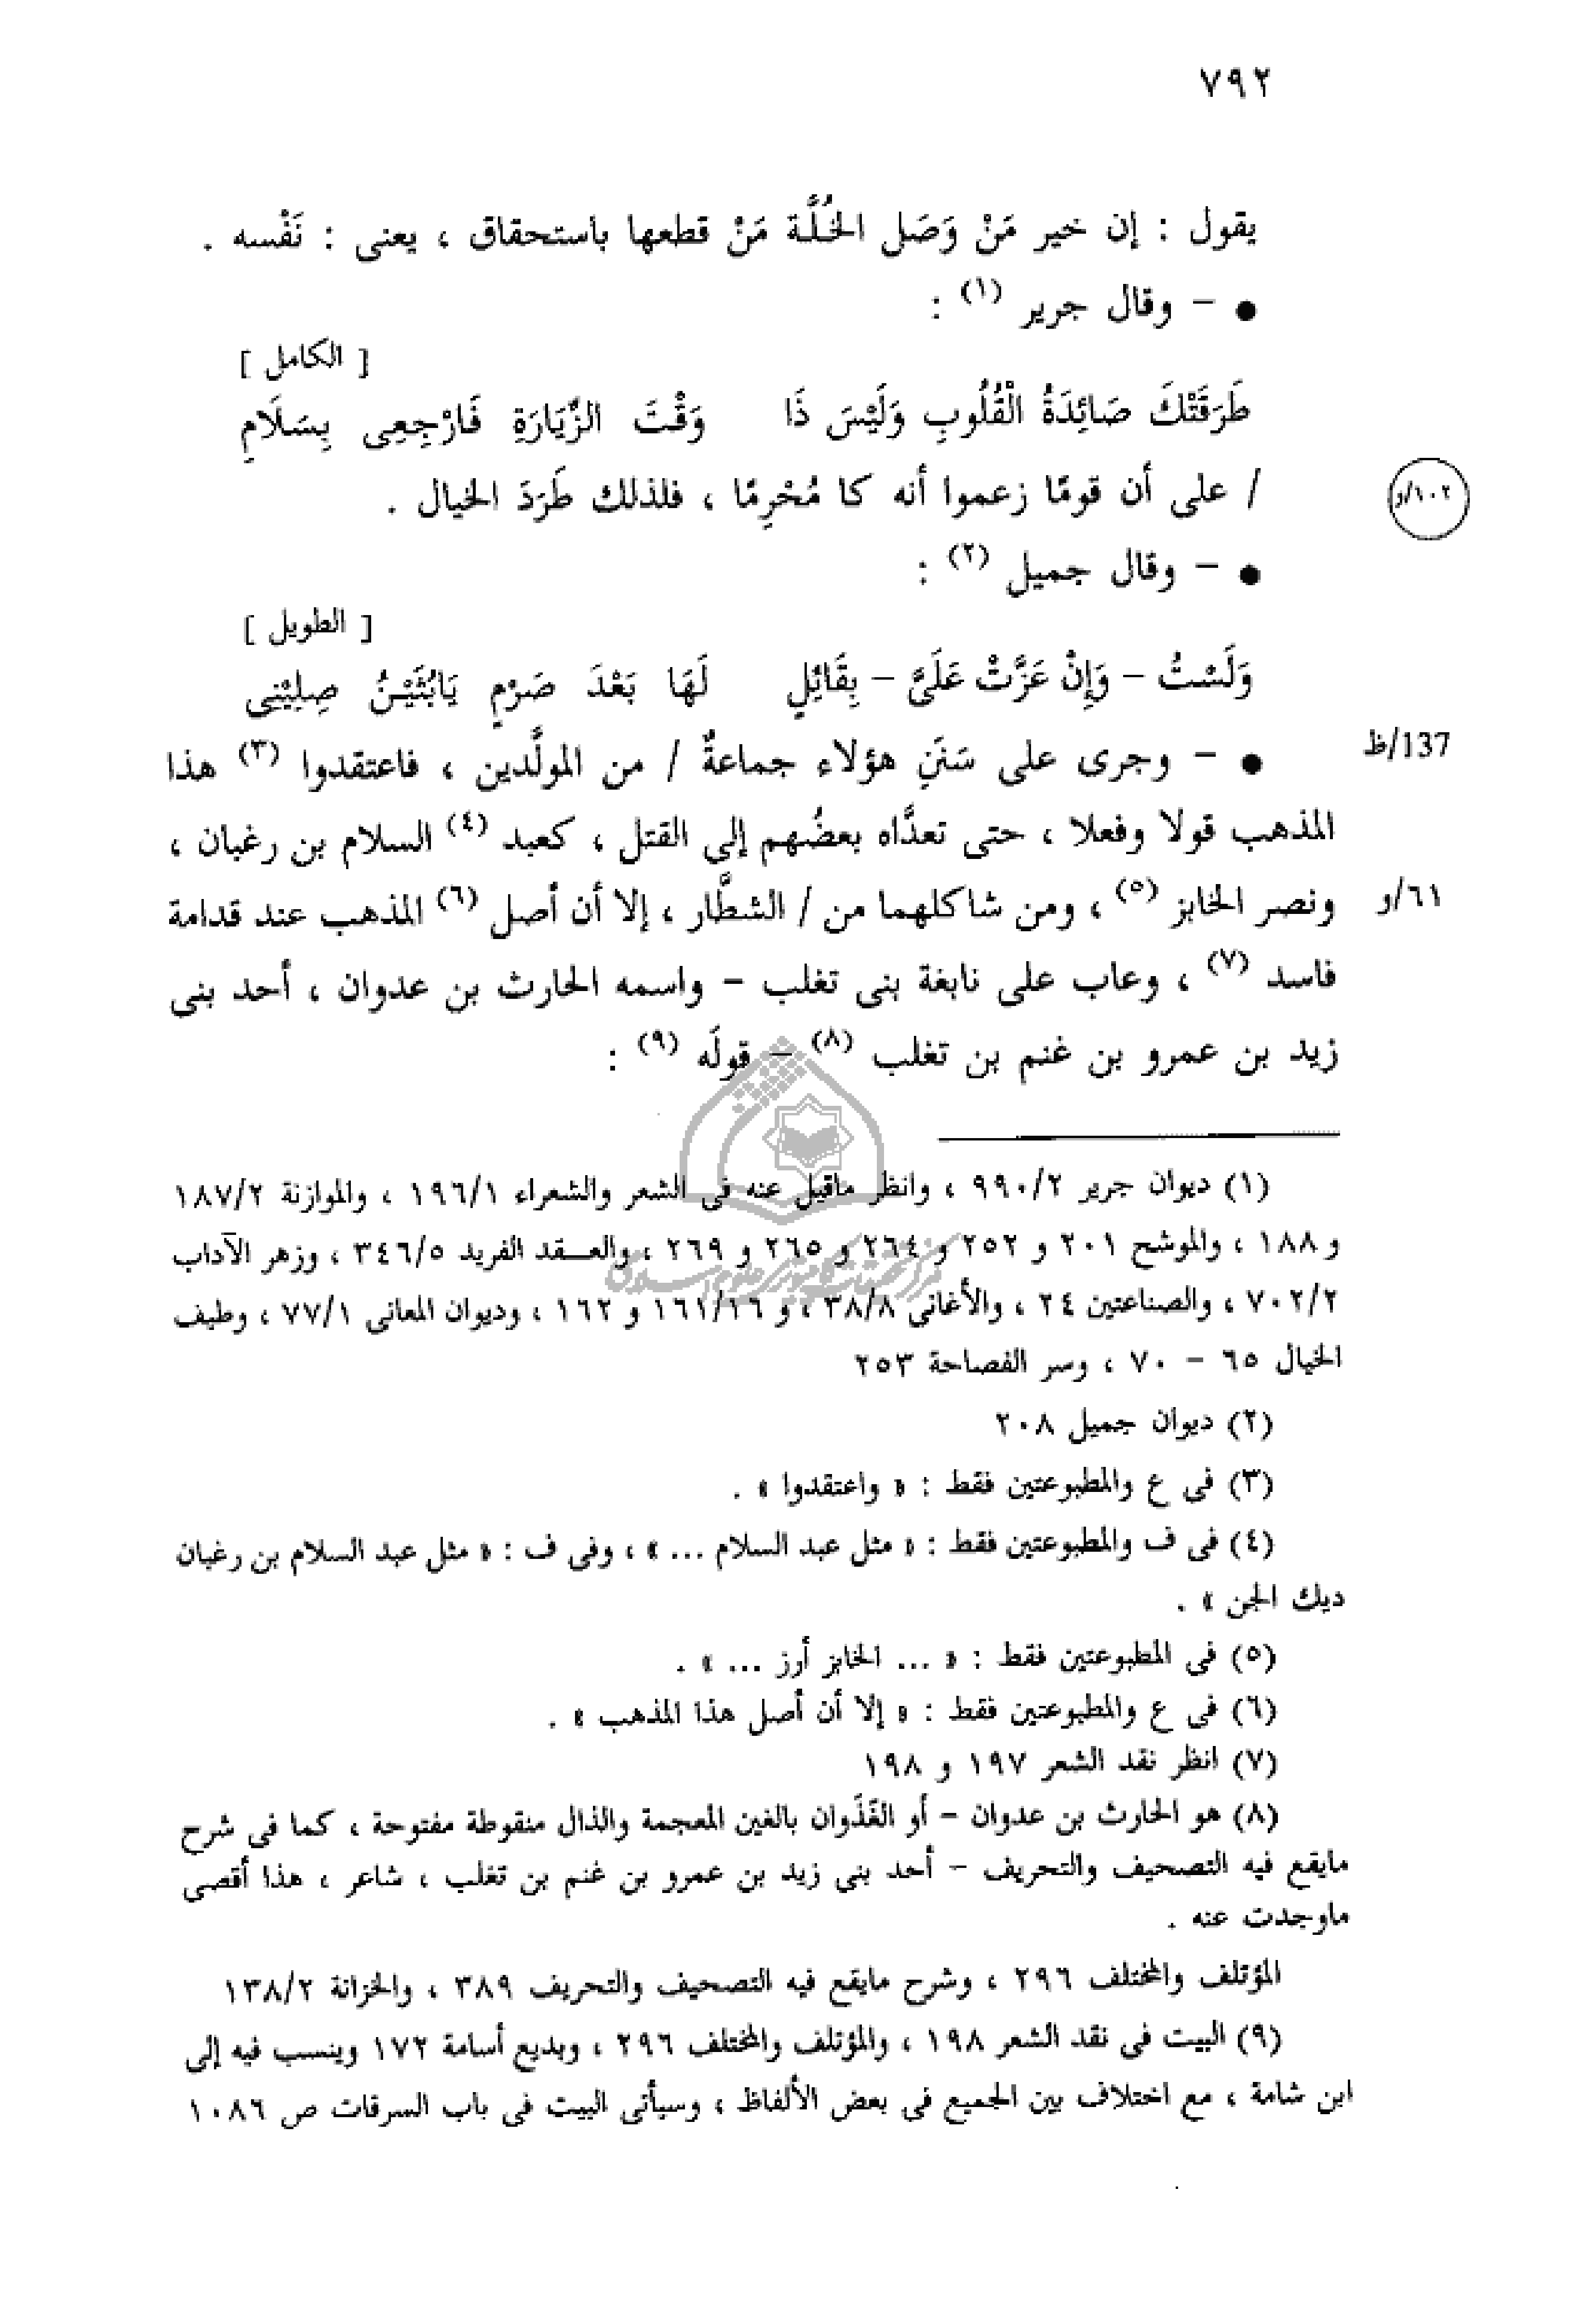 ٧٩٢
يقول : إن خير مَنْ وَصَل الخُلَّة مَنْ قطعها باستحقاق ، يعنى : نَفْسه .
● – وقال جرير (١) :
[ الكامل ]
طَرَقَتْكَ صَائِدَةُ الْقُلُوبِ وَلَيْسَ ذَا وَقْتَ الزِّيَارَةِ فَارْجِعِى بِسَلَامِ
/ على أن قومًا زعموا أنه كا مُحْرِمًا ، فلذلك طَرَدَ الخيال .
١٠٢/و
● – وقال جميل (٢) :
[ الطويل ]
وَلَسْتُ – وَإِنْ عَزَّتْ عَلَىَّ – بِقَائِلٍ لَهَا بَعْدَ صَرْمٍ يَابُثَيْنُ صِلِيْنِى
● – وجرى على سَنَنِ هؤلاء جماعةٌ / من المولَّدين ، فاعتقدوا (٣) هذا
137/ظ
المذهب قولا وفعلا ، حتى تعدَّاه بعضُهم إلى القتل ، كعبد (٤) السلام بن رغبان ،
ونصر الخابز (٥) ، ومن شاكلهما من / الشطَّار ، إلا أن أصل (٦) المذهب عند قدامة
٦١/و
فاسد (٧) ، وعاب على نابغة بنى تغلب – واسمه الحارث بن عدوان ، أحد بنى
زيد بن عمرو بن غنم بن تغلب (٨) – قولَه (٩) :
(١) ديوان جرير ٩٩٠/٢ ، وانظر ماقيل عنه فى الشعر والشعراء ١٩٦/١ ، والموازنة ١٨٧/٢
و ١٨٨ ، والموشح ٢٠١ و ٢٥٢ و ٢٦٤ و ٢٦٥ و ٢٦٩ ، والعـقد الفريد ٣٤٦/٥ ، وزهر الآداب
٧٠٢/٢ ، والصناعتين ٢٤ ، والأغانى ٣٨/٨ ، و ١٦١/١٦ و ١٦٢ ، وديوان المعانى ٧٧/١ ، وطيف
الخيال ٦٥ – ٧٠ ، وسر الفصاحة ٢٥٣
(٢) ديوان جميل ٢٠٨
(٣) فى ع والمطبوعتين فقط : « واعتقدوا » .
(٤) فى ف والمطبوعتين فقط : « مثل عبد السلام ... » ، وفى ف : « مثل عبد السلام بن رغبان
ديك الجن » .
(٥) فى المطبوعتين فقط : « ... الخابز أرز ... » .
(٦) فى ع والمطبوعتين فقط : « إلا أن أصل هذا المذهب » .
(٧) انظر نقد الشعر ١٩٧ و ١٩٨
(٨) هو الحارث بن عدوان – أو الغَذَوان بالغين المعجمة والذال منقوطة مفتوحة ، كما فى شرح
مايقع فيه التصحيف والتحريف – أحد بنى زيد بن عمرو بن غنم بن تغلب ، شاعر ، هذا أقصى
ماوجدت عنه .
المؤتلف والمختلف ٢٩٦ ، وشرح مايقع فيه التصحيف والتحريف ٣٨٩ ، والخزانة ١٣٨/٢
(٩) البيت فى نقد الشعر ١٩٨ ، والمؤتلف والمختلف ٢٩٦ ، وبديع أسامة ١٧٢ وينسب فيه إلى
ابن شامة ، مع اختلاف بين الجميع فى بعض الألفاظ ، وسيأتى البيت فى باب السرقات ص ١٠٨٦